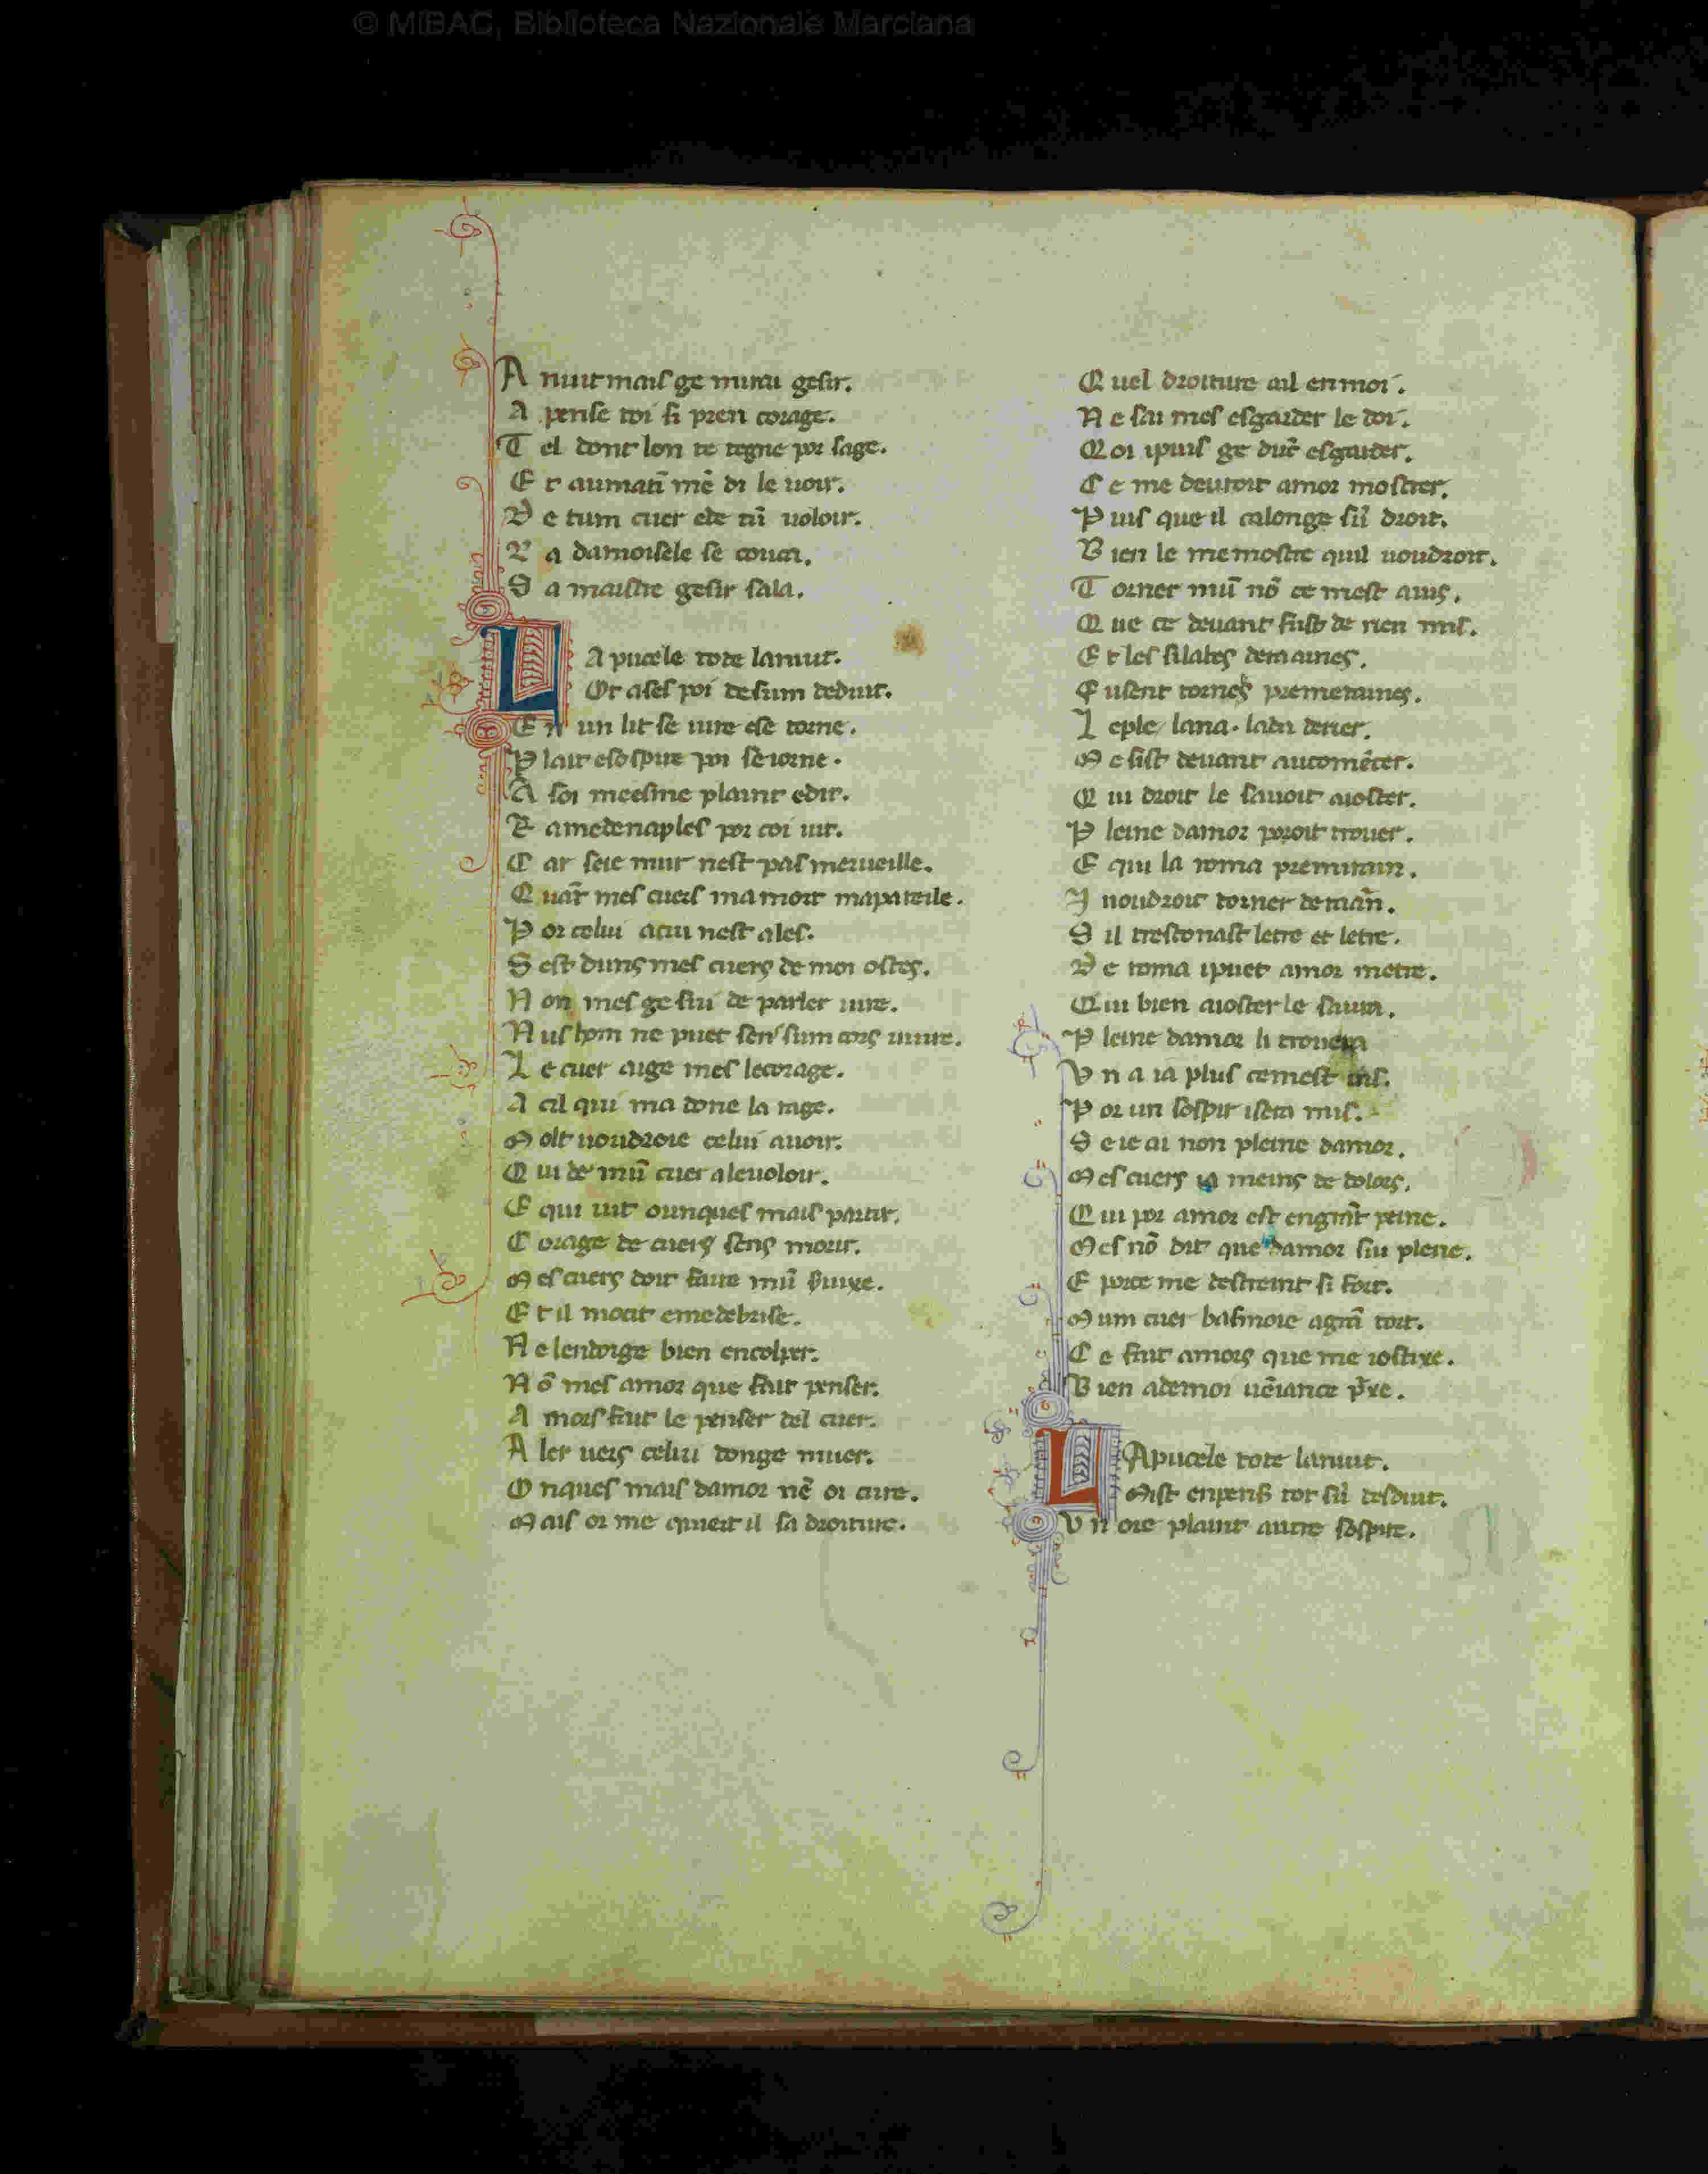 © MiBAC, Biblioteca Nazionale Marciana
A nuit mais ge mirai gesir.
A pense toi si pren corage.
T el dont lon te tegne por sage.
E t aumatī mē di le uoir.
D e tum cuer ede tū uoloir.
L a damoisele se couca.
S a maistre gesir sala.
L A pucele tote la nuit.
Or ases poi de sum deduit.
E n un lit se uire ese torne.
P laint esospire poi seiorne.
A soi meesme plaint edit.
R amedenaples por coi uit.
C ar seie muir nest pas merueille.
Q uāt mes cuers ma mort mapareile.
P or celui acui nest ales.
S est duns mes cuers de moi ostes.
N on mes ge sui de parler iure.
N us hom ne puet sens sum cors uiure.
L e cuer aige mes le corage.
A cil qui ma done la rage.
M olt uoudroie celui auoir.
Q ui de mū cuer a leuoloir.
E qui uit ounques mais partir.
C orage de cuers sens morir.
M es cuers doit faire mū seruixe.
E t il mocit emedebrise.
N e lendoige bien encolper.
N ō mes amor que fait penser.
A mors fait le penser del cuer.
A ler uers celui donge muer.
O nques mais damor nē oi cure.
M ais or me quiert il sa droiture.
Q uel droiture ail en moi.
N e sai mes esgarder le doi.
Q oi ipuis ge dūt esgarder.
C e me deuroit amor mostrer.
P uis que il calonge sū droit.
B ien le me mostre quil uoudroit.
T orner mū nō ce mest auis.
Q ue ce deuant fust de rien mis.
E t les silabes deraaines.
F usent tornes premeraines.
L e ple lana. lada derier.
M e sist deuant aucomēcer.
Q ui droit le sauoit aioster.
P leine damor poroit trouer.
E qui la roma premirain.
I uoudroit torner derrāin.
S il trestornast letre et letre.
D e roma ipuet amor metre.
Q ui bien aioster le saura.
P leine damor li trouera
U n a ia plus cemest uis.
P or un sospir isera mis.
S e ie ai non pleine damor.
M es cuers ia meins de dolors.
Q ui por amor est en grāt peine.
M es nō dit que damor sui pleine.
E porce me destreint si fort.
M um cuer basmoie agrā tort.
C e fait amors que me iostixe.
B ien ademoi uēiance prxe.
L A pucele tote la nuit.
Mist en pens tot sū desduit.
U n ore plaint autre sospire.